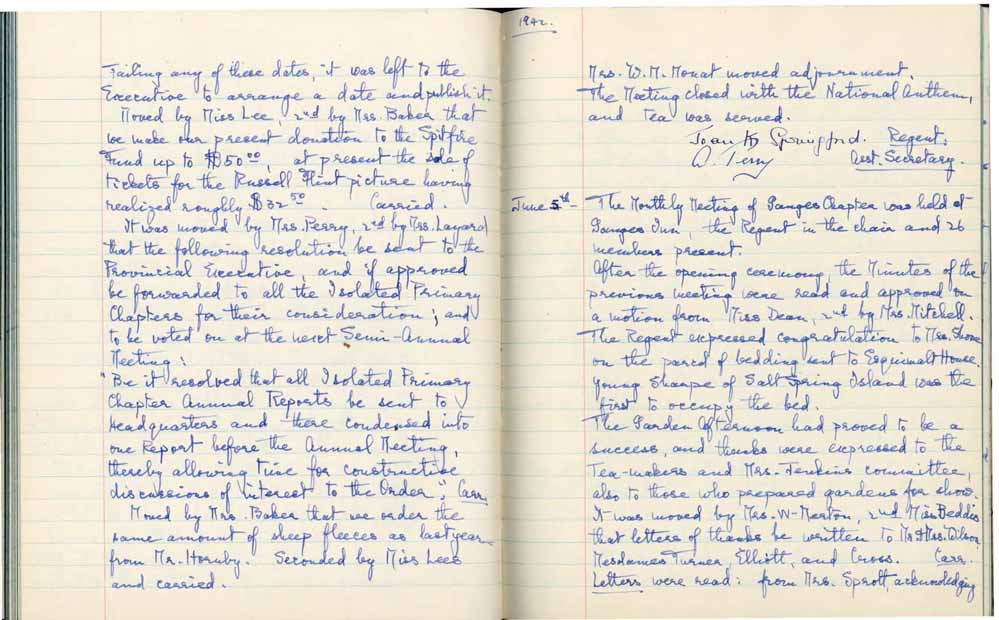 Failing any of these dates, it was left to the
Executive to arrange a date and publish it.
Moved by Miss Lee, 2nd by Mrs. Baker that
we make our present donation to the Spitfire
Fund up to $50 00, at present the sale of
tickets for the Russell Flint picture having
realized roughly $32 50. Carried.
It was moved by Mrs. Perry, 2nd by Mrs. Layard
that the following resolution be sent to the
Provincial Executive, and if approved
be forwarded to all the Isolated Primary
Chapters for their consideration; and
to be voted on at the next Semi-Annual
Meeting:
"Be it resolved that all Isolated Primary
Chapter Annual Reports be sent to
Headquarters and there condensed into
one Report before the Annual Meeting,
thereby allowing time for constructive
discussions of interest to the Order." Carr.
Moved by Mrs. Baker that we order the
same amount of sheep fleeces as last year
from Mr. Hornby. Seconded by Miss Lees
and carried.
1942.
Mrs. W. M. Mouat moved adjournment.
The Meeting closed with the National Anthem,
and Tea was served.
Joan Springford. Regent.
Q. Terry Asst. Secretary.
June 5th - The Monthly Meeting of Ganges Chapter was held at
Ganges Inn, the Regent in the chair and 26
members present.
After the opening ceremony, the Minutes of the
previous meeting were read and approved on
a motion from Miss Dean, 2nd by Mrs. Mitchell.
The Regent expressed congratulation to Mrs. Shove
on the parcel of bedding sent to Esquimalt House.
Young Sharpe of Salt Spring Island was the
first to occupy the bed.
The Garden Afternoon had proved to be a
success, and thanks were expressed to the
Tea-makers and Mrs. Jenkins committee,
also to those who prepared gardens for show.
It was moved by Mrs. W-Merton, 2nd Miss Beddis
that letters of thanks be written to Mr & Mrs. Wilson
Mesdames Turner, Elliott, and Cross. Carr.
Letters were read: from Mrs. Sprott, acknowledging